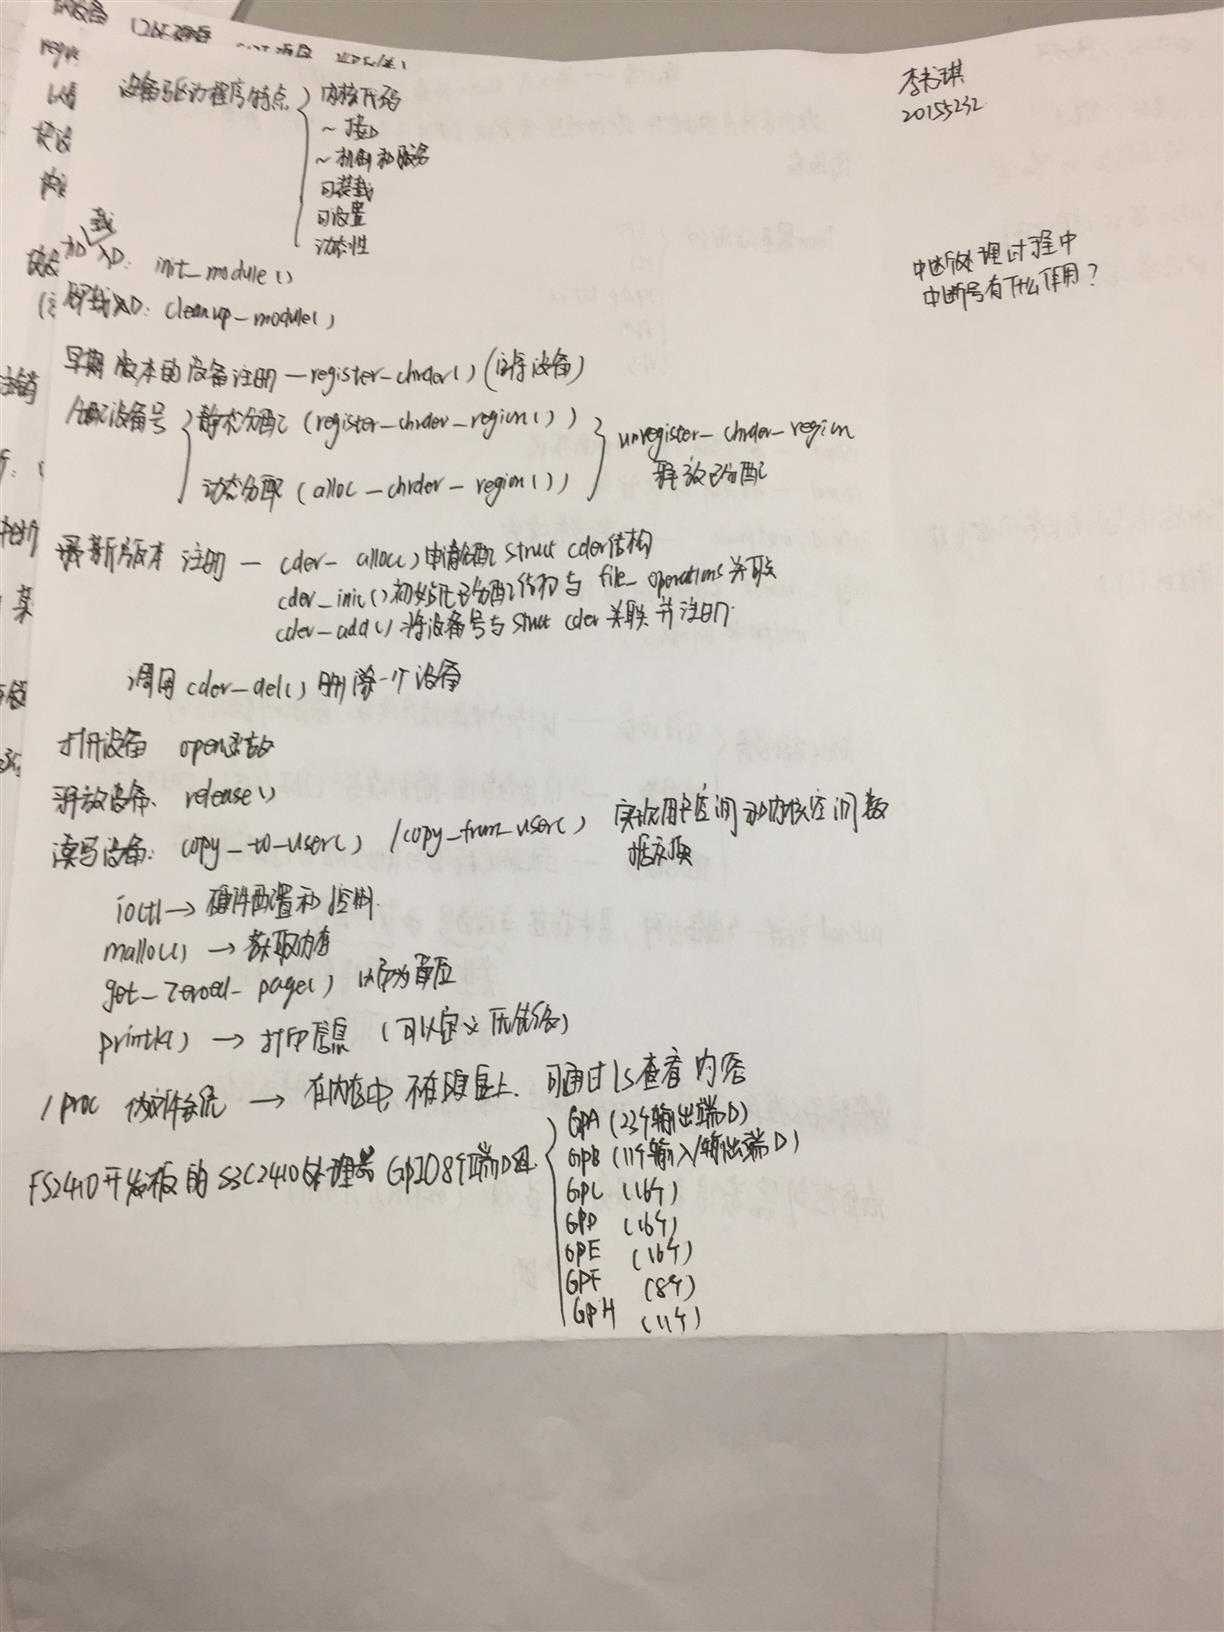 李书琪
20155232
设备驱动程序特点 { 内核代码
~接口
~机制和服务
可装载
可设置
动态性
加载入口: init_module()
卸载入口: cleanup_module()
中断处理过程中
中断号有什么作用?
早期版本的设备注册 — register-chrdev() (字符设备)
分配设备号 { 静态分配 (register-chrdev-region())
动态分配 (alloc-chrdev-region())
} unregister-chrdev-region
释放已分配
最新版本 注册 — cdev-alloc() 申请分配 struct cdev结构
cdev_init() 初始化已分配结构与 file_operations关联
cdev-add() 将设备号与 struct cdev 关联并注册
调用 cdev-del() 删除一个设备
打开设备 open函数
释放设备: release()
读写设备: copy_to_user() / copy_from_user() 实现用户空间和内核空间数
据交换
ioctl → 硬件配置和控制.
malloc() → 获取内存
get_zeroed_page() 以页为单位
printk() → 打印信息 (可以定义优先级)
/proc 伪文件系统 → 在内存中 不在硬盘上. 可通过ls查看内容
FS2410开发板的 S3C2410处理器 GPIO 8个端口组 { GPA (23个输出端口)
GPB (11个输入/输出端口)
GPC (16个)
GPD (16个)
GPE (16个)
GPF (8个)
GPH (11个)